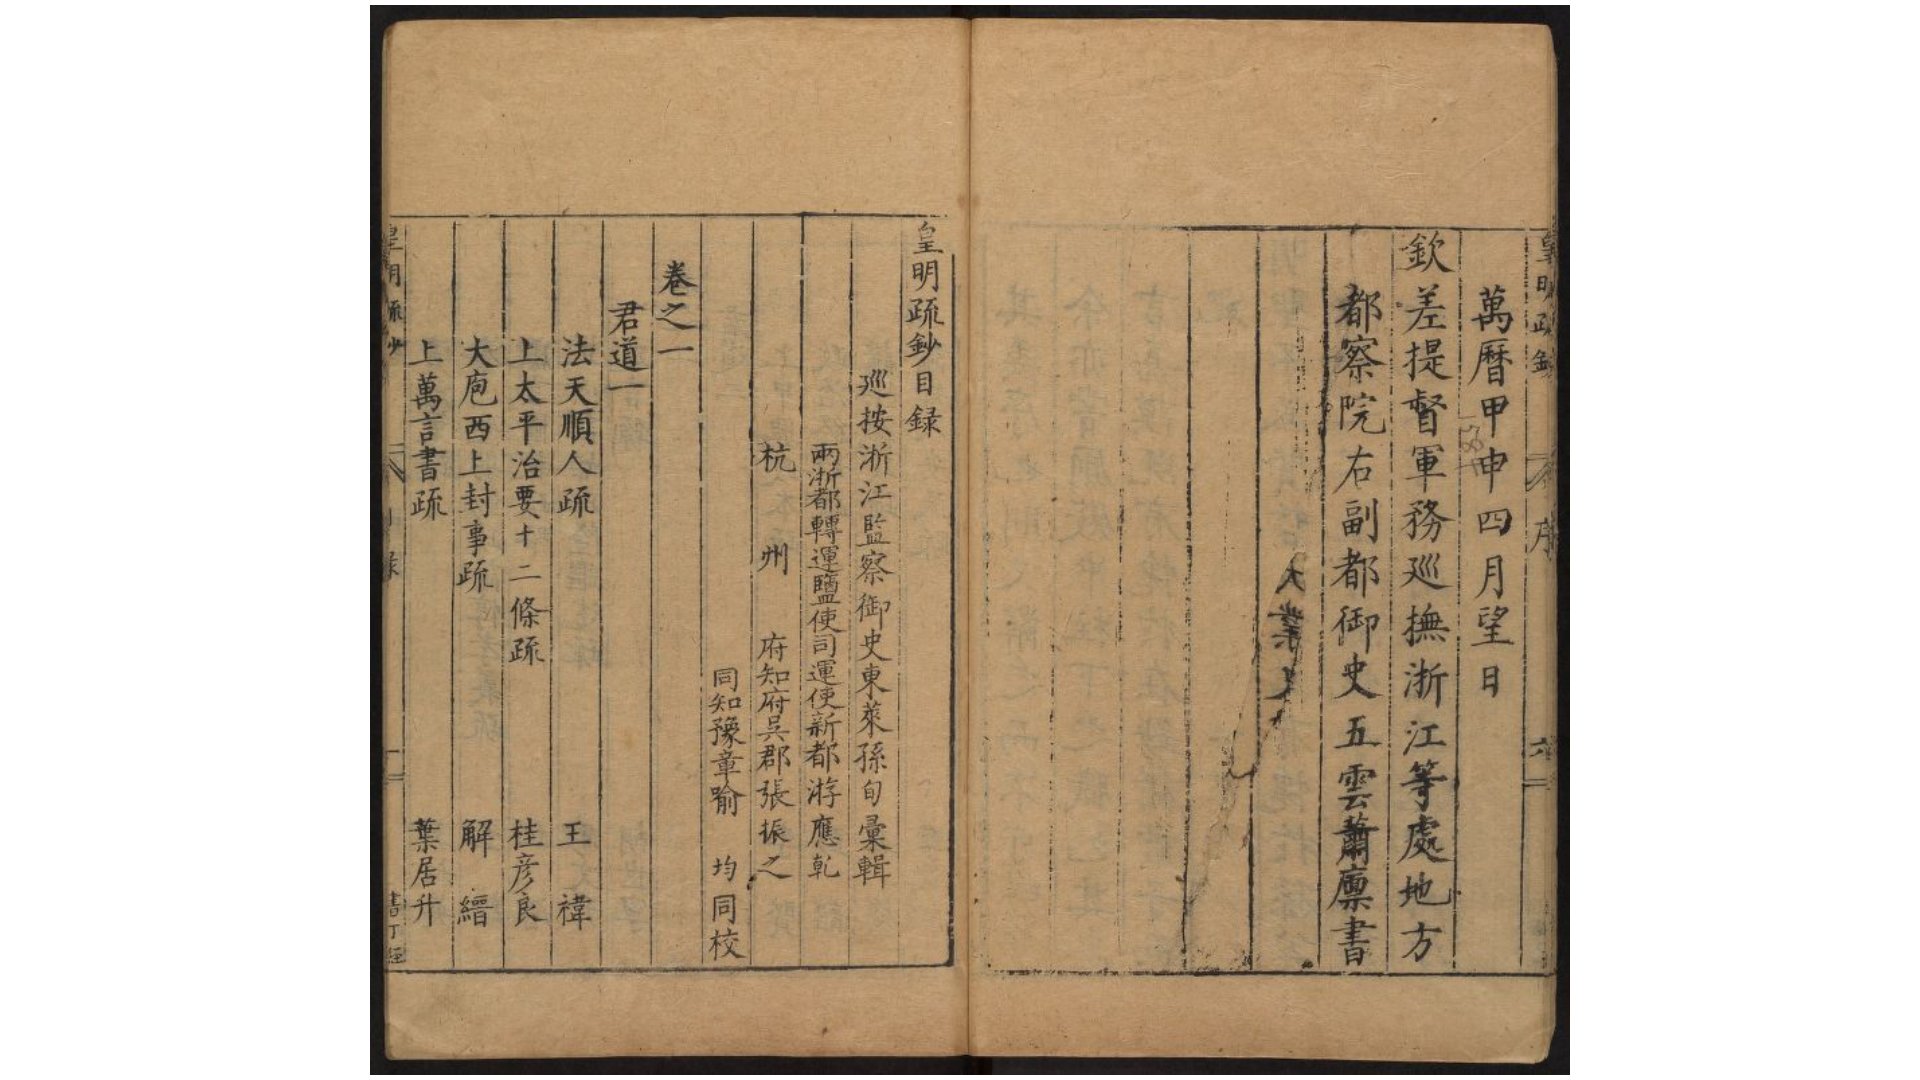 皇明疏鈔
序
六
萬曆甲申四月望日
欽差提督軍務巡撫浙江等處地方
都察院右副都御史五雲蕭廩書
大業
皇明疏鈔目録
巡按浙江監察御史東萊孫旬彙輯
兩浙都轉運鹽使司運使新都游應乾
杭州府知府吳郡張振之
同知豫章喻均同校
卷之一
君道一
法天順人疏 王禕
上太平治要十二條疏 桂彦良
大庖西上封事疏 解縉
上萬言書疏 葉居升
皇明疏鈔